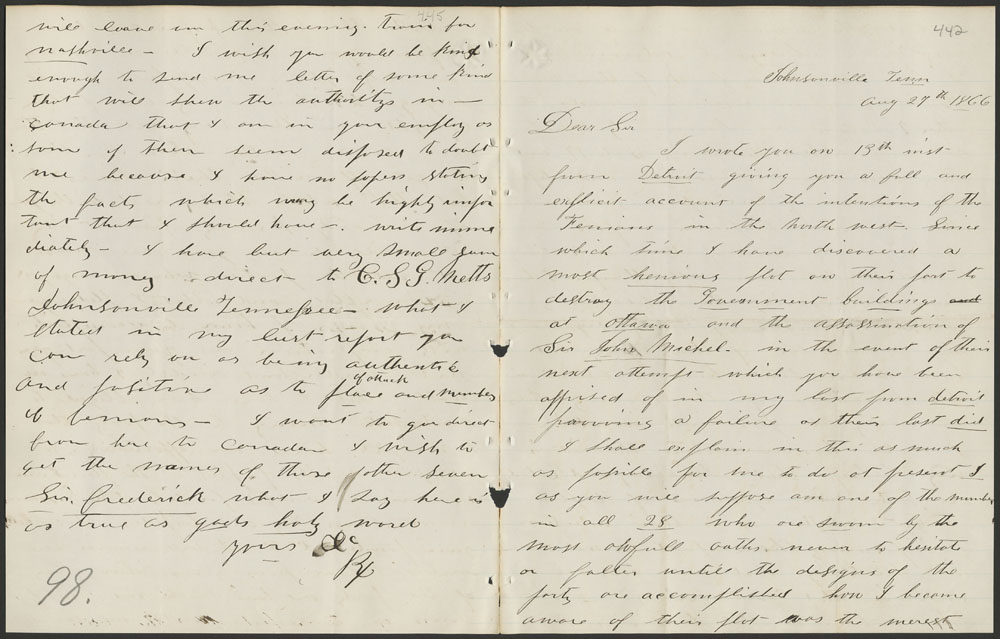 445
will leave on this evening. train for
nashville – I wish you would be kind
enough to send me letter of some kind
that will shew the authoritys in –
Canada that I am in your employ as
some of them seem disposed to doubt
me because I have no papers stating
the facts which may be highly impor
tant that I should have –. write imme
diately – I have but very small sum
of money direct to C. S. G. Metts
Johnsonville Tennessee – what I
stated in my last report you
can rely on as being authentic
of attack
and positive as to place and number
of fenians – I want to go direct
from here to Canada I wish to
get the names of those other seven
Sir. Frederick what I say here is
as true as gods holy word
yours &c
98.
442
Johnsonville Tenn
Aug 27th 1866
Dear Sir
I wrote you on 13th inst
from Detroit giving you a full and
explicit account of the intentions of the
Fenians in the north west. Since
which time I have discovered a
most henious plot on their part to
destroy the Government buildings and
at Ottawa and the assassination of
Sir John Michel. in the event of their
next attempt which you have been
apprised of in my last from detroit
prooveing a failure as their last did
I shall explain in this as much
as possible for me to do at present I
as you will suppose am one of the number
in all 28 who are sworn by the
most awfull oaths never to hesitate
or falter untill the designs of the
party are accomplished how I became
aware of their plot was the merest